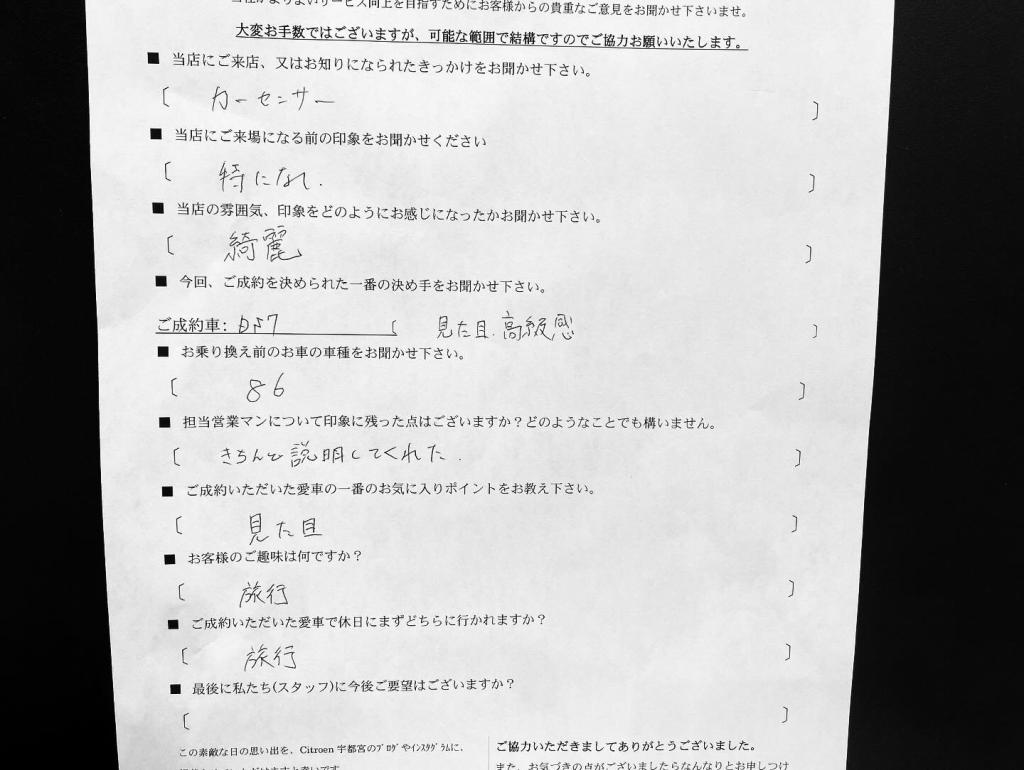 当社がよりよいサービス向上を目指すためにお客様からの貴重なご意見をお聞かせ下さいませ。
大変お手数ではございますが、可能な範囲で結構ですのでご協力お願いいたします。
■ 当店にご来店、又はお知りになられたきっかけをお聞かせ下さい。
〔 カーセンサー 〕
■ 当店にご来場になる前の印象をお聞かせください
〔 特になし. 〕
■ 当店の雰囲気、印象をどのようにお感じになったかお聞かせ下さい。
〔 綺麗 〕
■ 今回、ご成約を決められた一番の決め手をお聞かせ下さい。
ご成約車: DS7 〔 見た目.高級感 〕
■ お乗り換え前のお車の車種をお聞かせ下さい。
〔 86 〕
■ 担当営業マンについて印象に残った点はございますか?どのようなことでも構いません。
〔 きちんと説明してくれた. 〕
■ ご成約いただいた愛車の一番のお気に入りポイントをお教え下さい。
〔 見た目 〕
■ お客様のご趣味は何ですか?
〔 旅行 〕
■ ご成約いただいた愛車で休日にまずどちらに行かれますか?
〔 旅行 〕
■ 最後に私たち(スタッフ)に今後ご要望はございますか?
〔 〕
この素敵な日の思い出を、Citroen 宇都宮のブログやインスタグラムに、
ご協力いただきましてありがとうございました。
また、お気づきの点がございましたらなんなりとお申しつけ